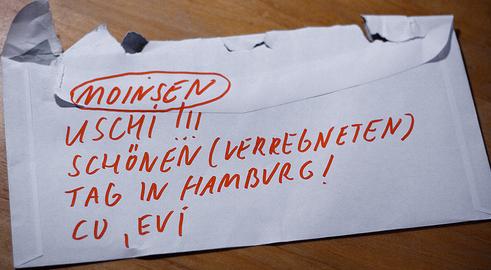 MOINSEN
USCHI !!!
SCHÖNEN (VERREGNETEN)
TAG IN HAMBURG!
CU, EVI